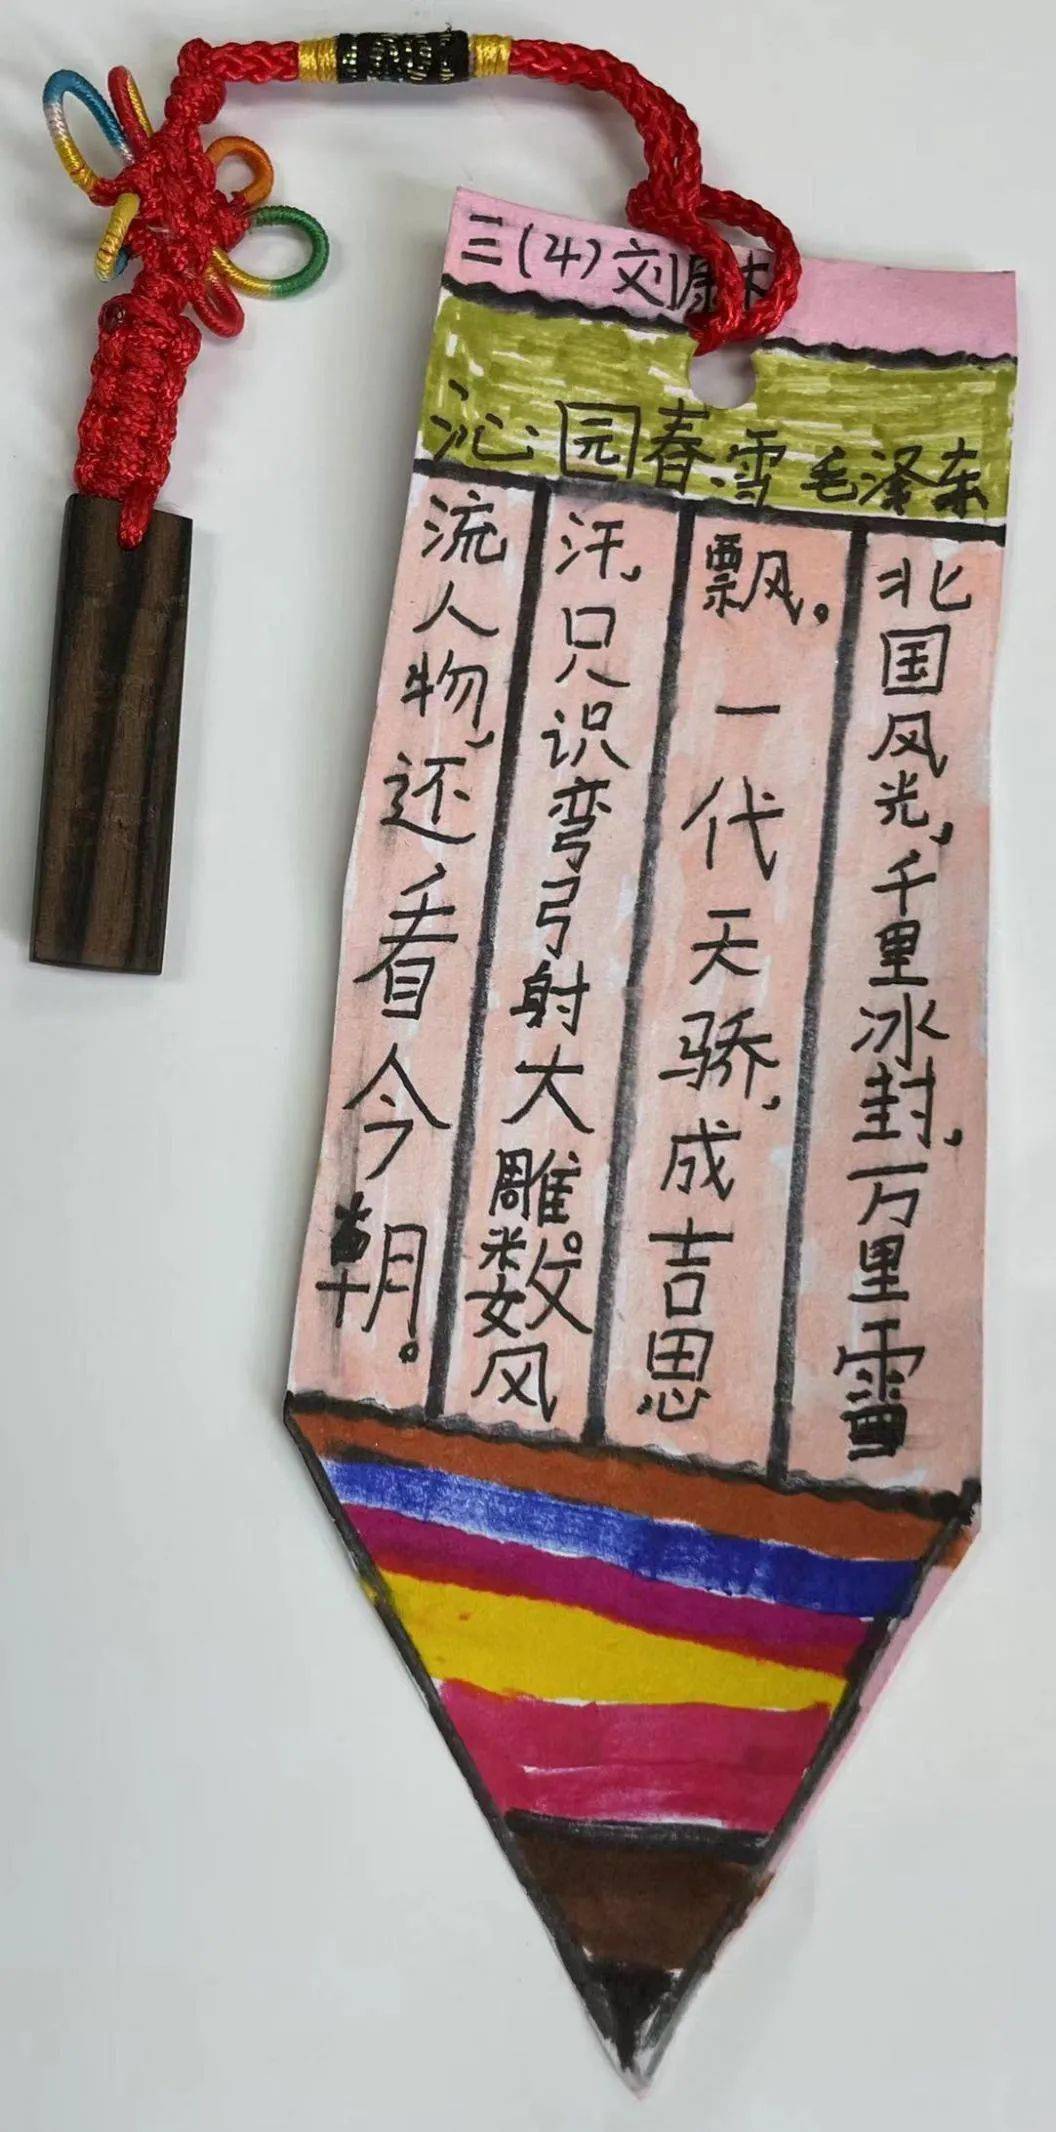 三(4)刘
沁园春雪 毛泽东
北国风光,千里冰封,万里雪
飘。一代天骄,成吉思
汗,只识弯弓射大雕。数风
流人物,还看今朝。